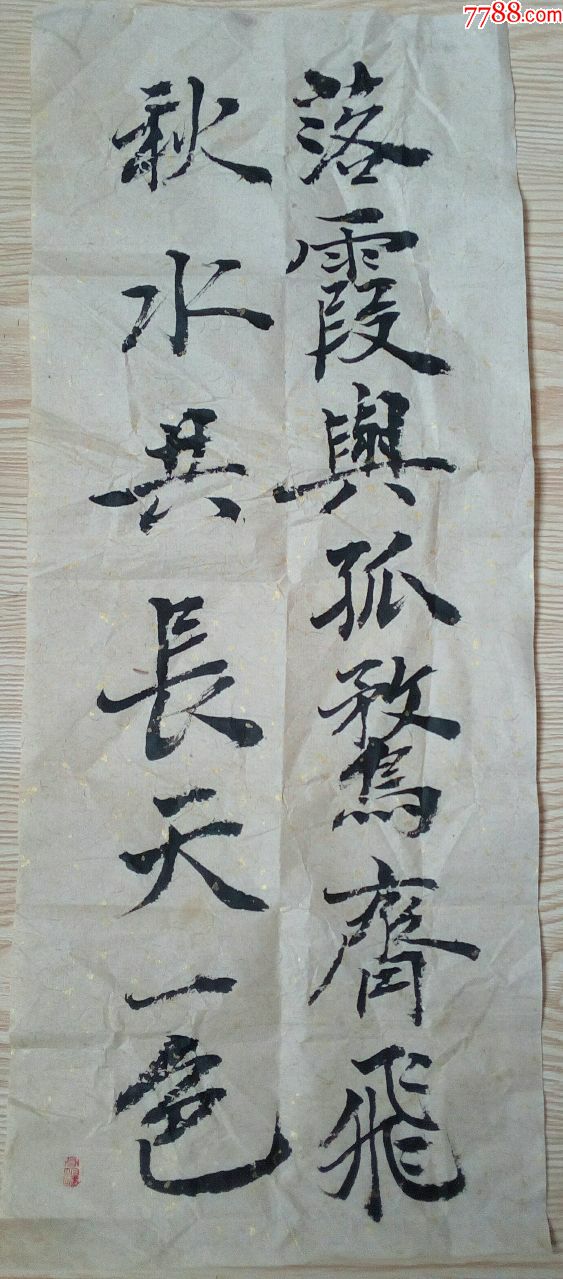 7788.com
落霞與孤鶩齊飛
秋水共長天一色